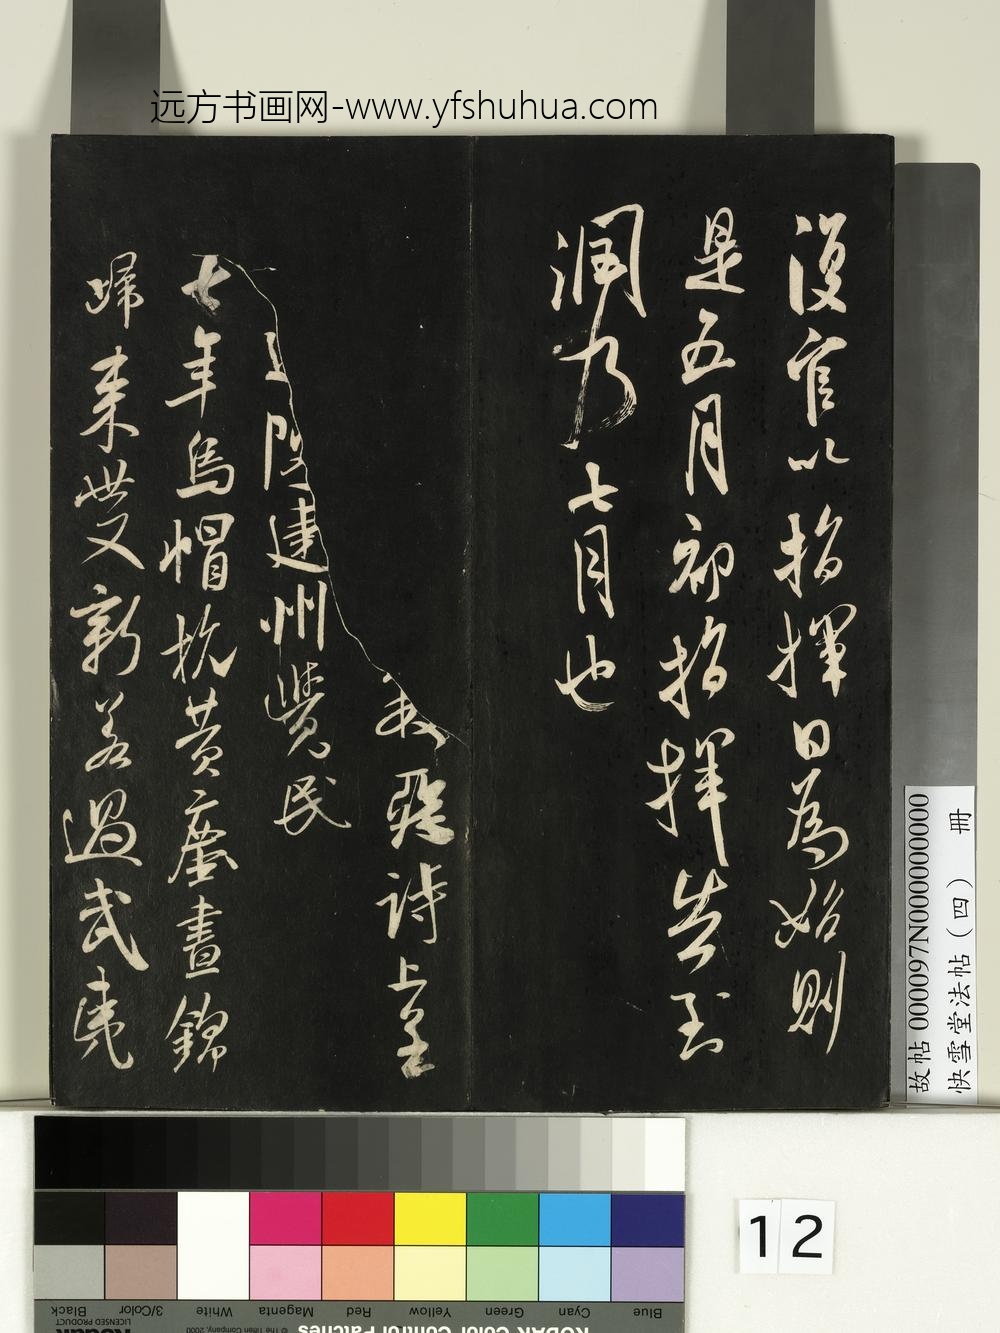 远方书画网-www.yfshuhua.com
復官以指揮日為始則
是五月初指揮告到
澗乃七月也
惡詩上呈
建州覺民
七年烏帽抗黃塵晝錦
歸來世又新若過武夷
故帖 000097N000000000
快雪堂法帖（四） 冊
12
Black
3/Color
White
Magenta
Red
Yellow
Green
Cyan
Blue
LICENSED PRODUCT
© The Tiffen Company, 2000
Kodak
KODAK Color Control Patches